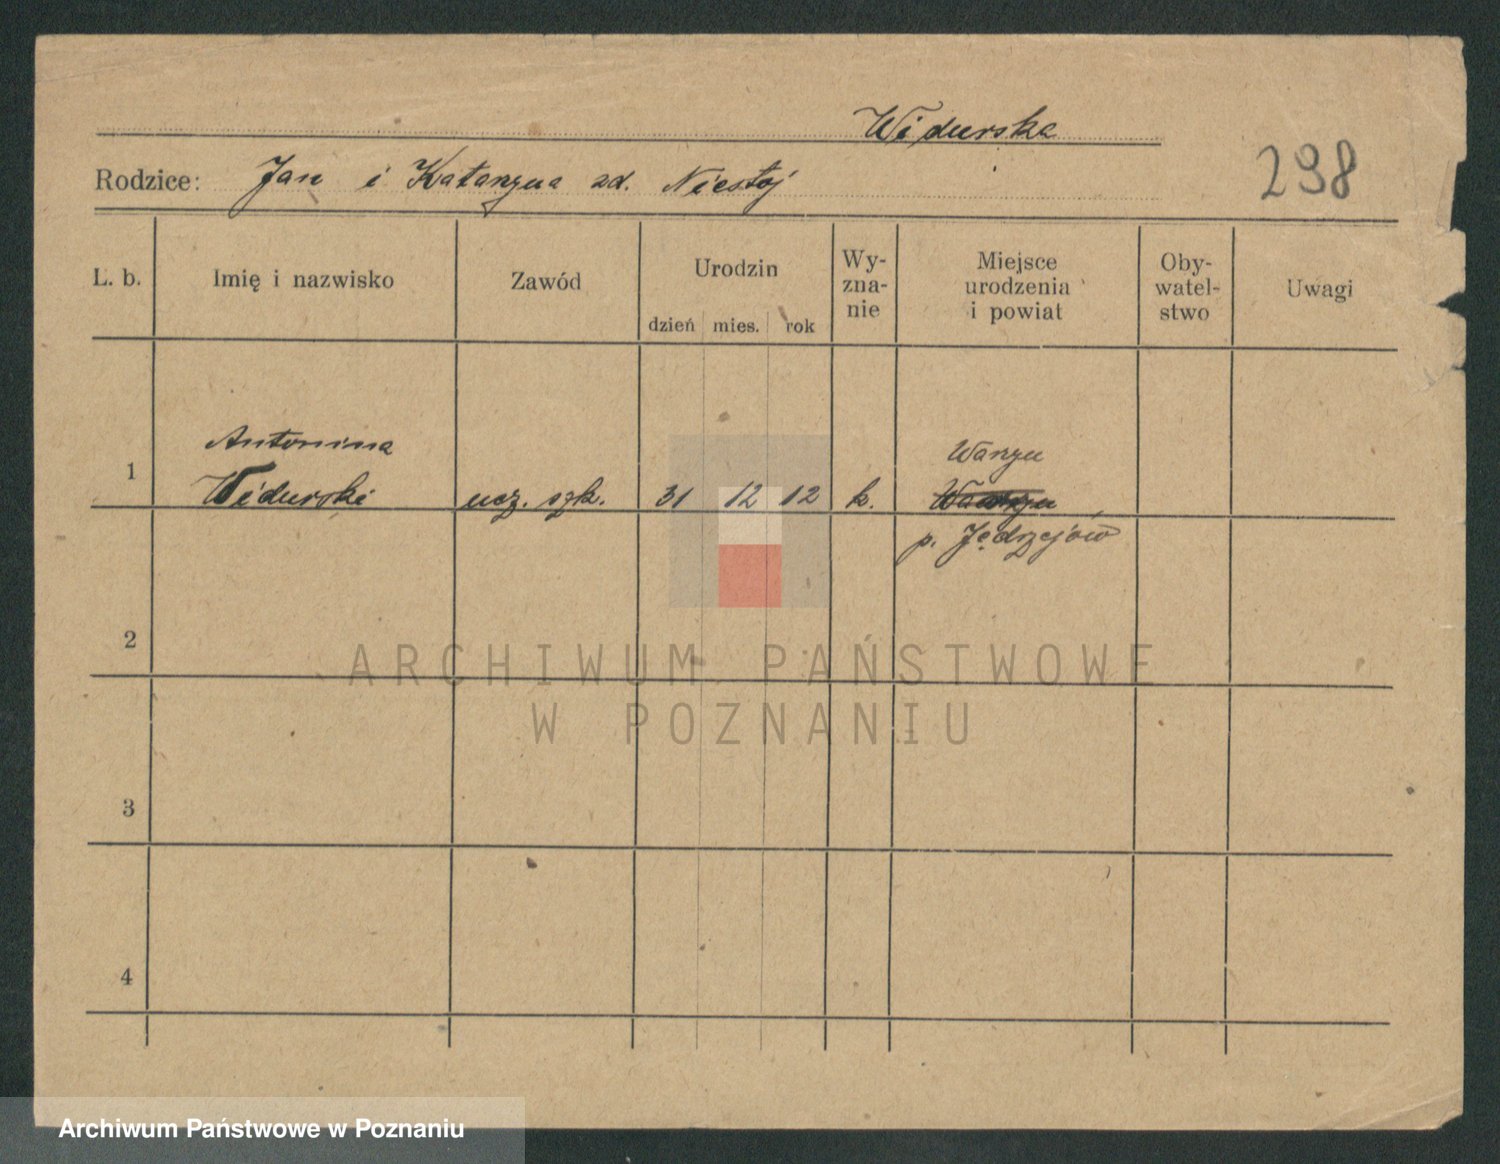 Widurska
298
Rodzice: Jan i Katarzyna zd. Niestój
L. b.
Imię i nazwisko
Zawód
Urodzin
dzień mies. rok
Wy-
zna-
nie
Miejsce
urodzenia
i powiat
Oby-
watel-
stwo
Uwagi
1
Antonina
Widurski
ucz. szk.
31 12 12
k.
Warzyn
p. Jędrzejów
2
3
4
ARCHIWUM PAŃSTWOWE
W POZNANIU
Archiwum Państwowe w Poznaniu